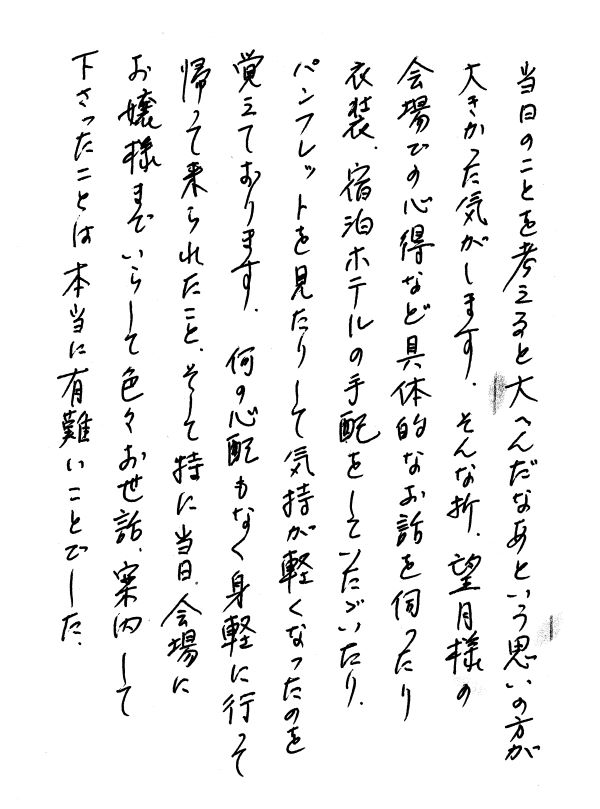 当日のことを考えると大へんだなあという思いの方が
大きかった気がします。そんな折、望月様の
会場での心得など具体的なお話を伺ったり
衣装、宿泊ホテルの手配をしていただいたり、
パンフレットを見たりして気持が軽くなったのを
覚えております。何の心配もなく身軽に行って
帰って来られたこと、そして特に当日、会場に
お嬢様までいらして色々お世話、案内して
下さったことは本当に有難いことでした。